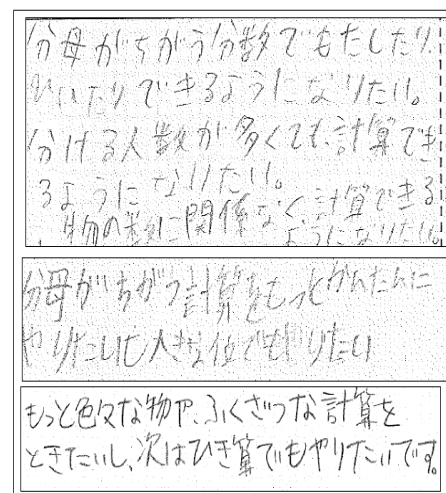 分母がちがう分数でもたしたり、
ひいたりできるようになりたい。
分ける人数が多くても、計算でき
るようになりたい。
物の数に関係なく、計算できる
ようになりたい。
分母がちがう計算をもっとかんたんに
やりたいし人数位でもやりたい
もっと色々な物や、ふくざつな計算を
ときたいし、次はひき算でもやりたいです。